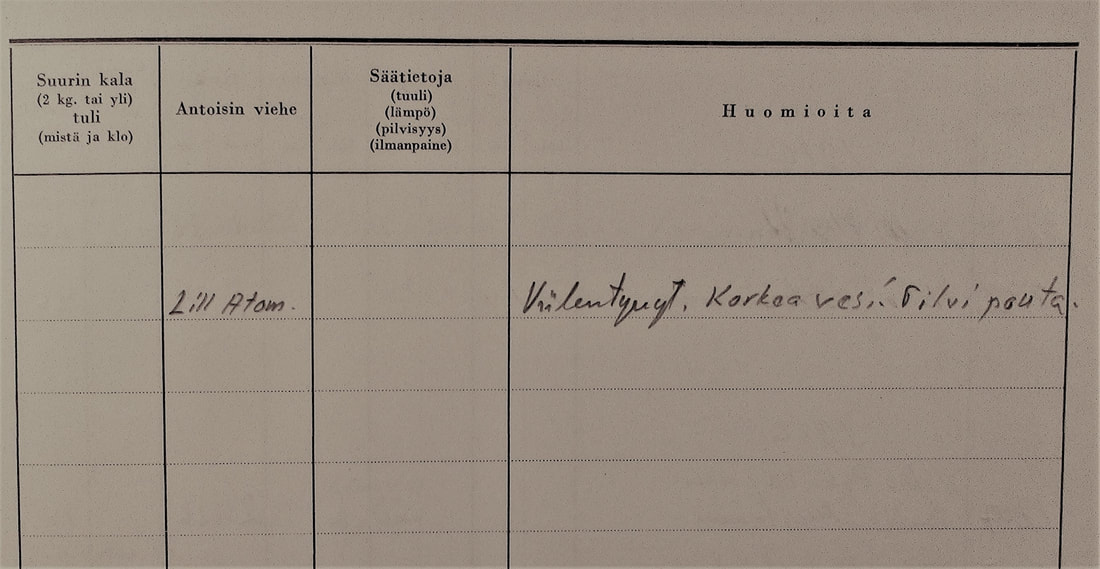 Suurin kala
(2 kg. tai yli)
tuli
(mistä ja klo)
Antoisin viehe
Säätietoja
(tuuli)
(lämpö)
(pilvisyys)
(ilmanpaine)
Huomioita
Lill Atom.
Viilentynyt. Korkea vesi. Pilvi pouta.